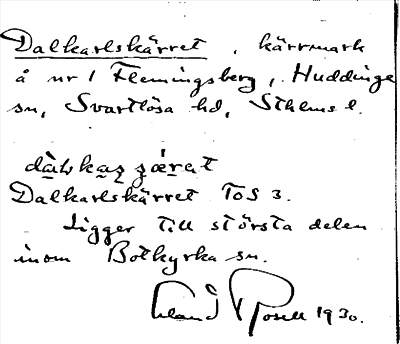 Dalkarlskärret, kärrmark
å nr 1 Flemingsberg, Huddinge
sn, Svartlösa hd, Sthlms l.
Dalkarlskärret TOS 3.
Ligger till största delen
inom Botkyrka sn.
Erland Rosell 1930.